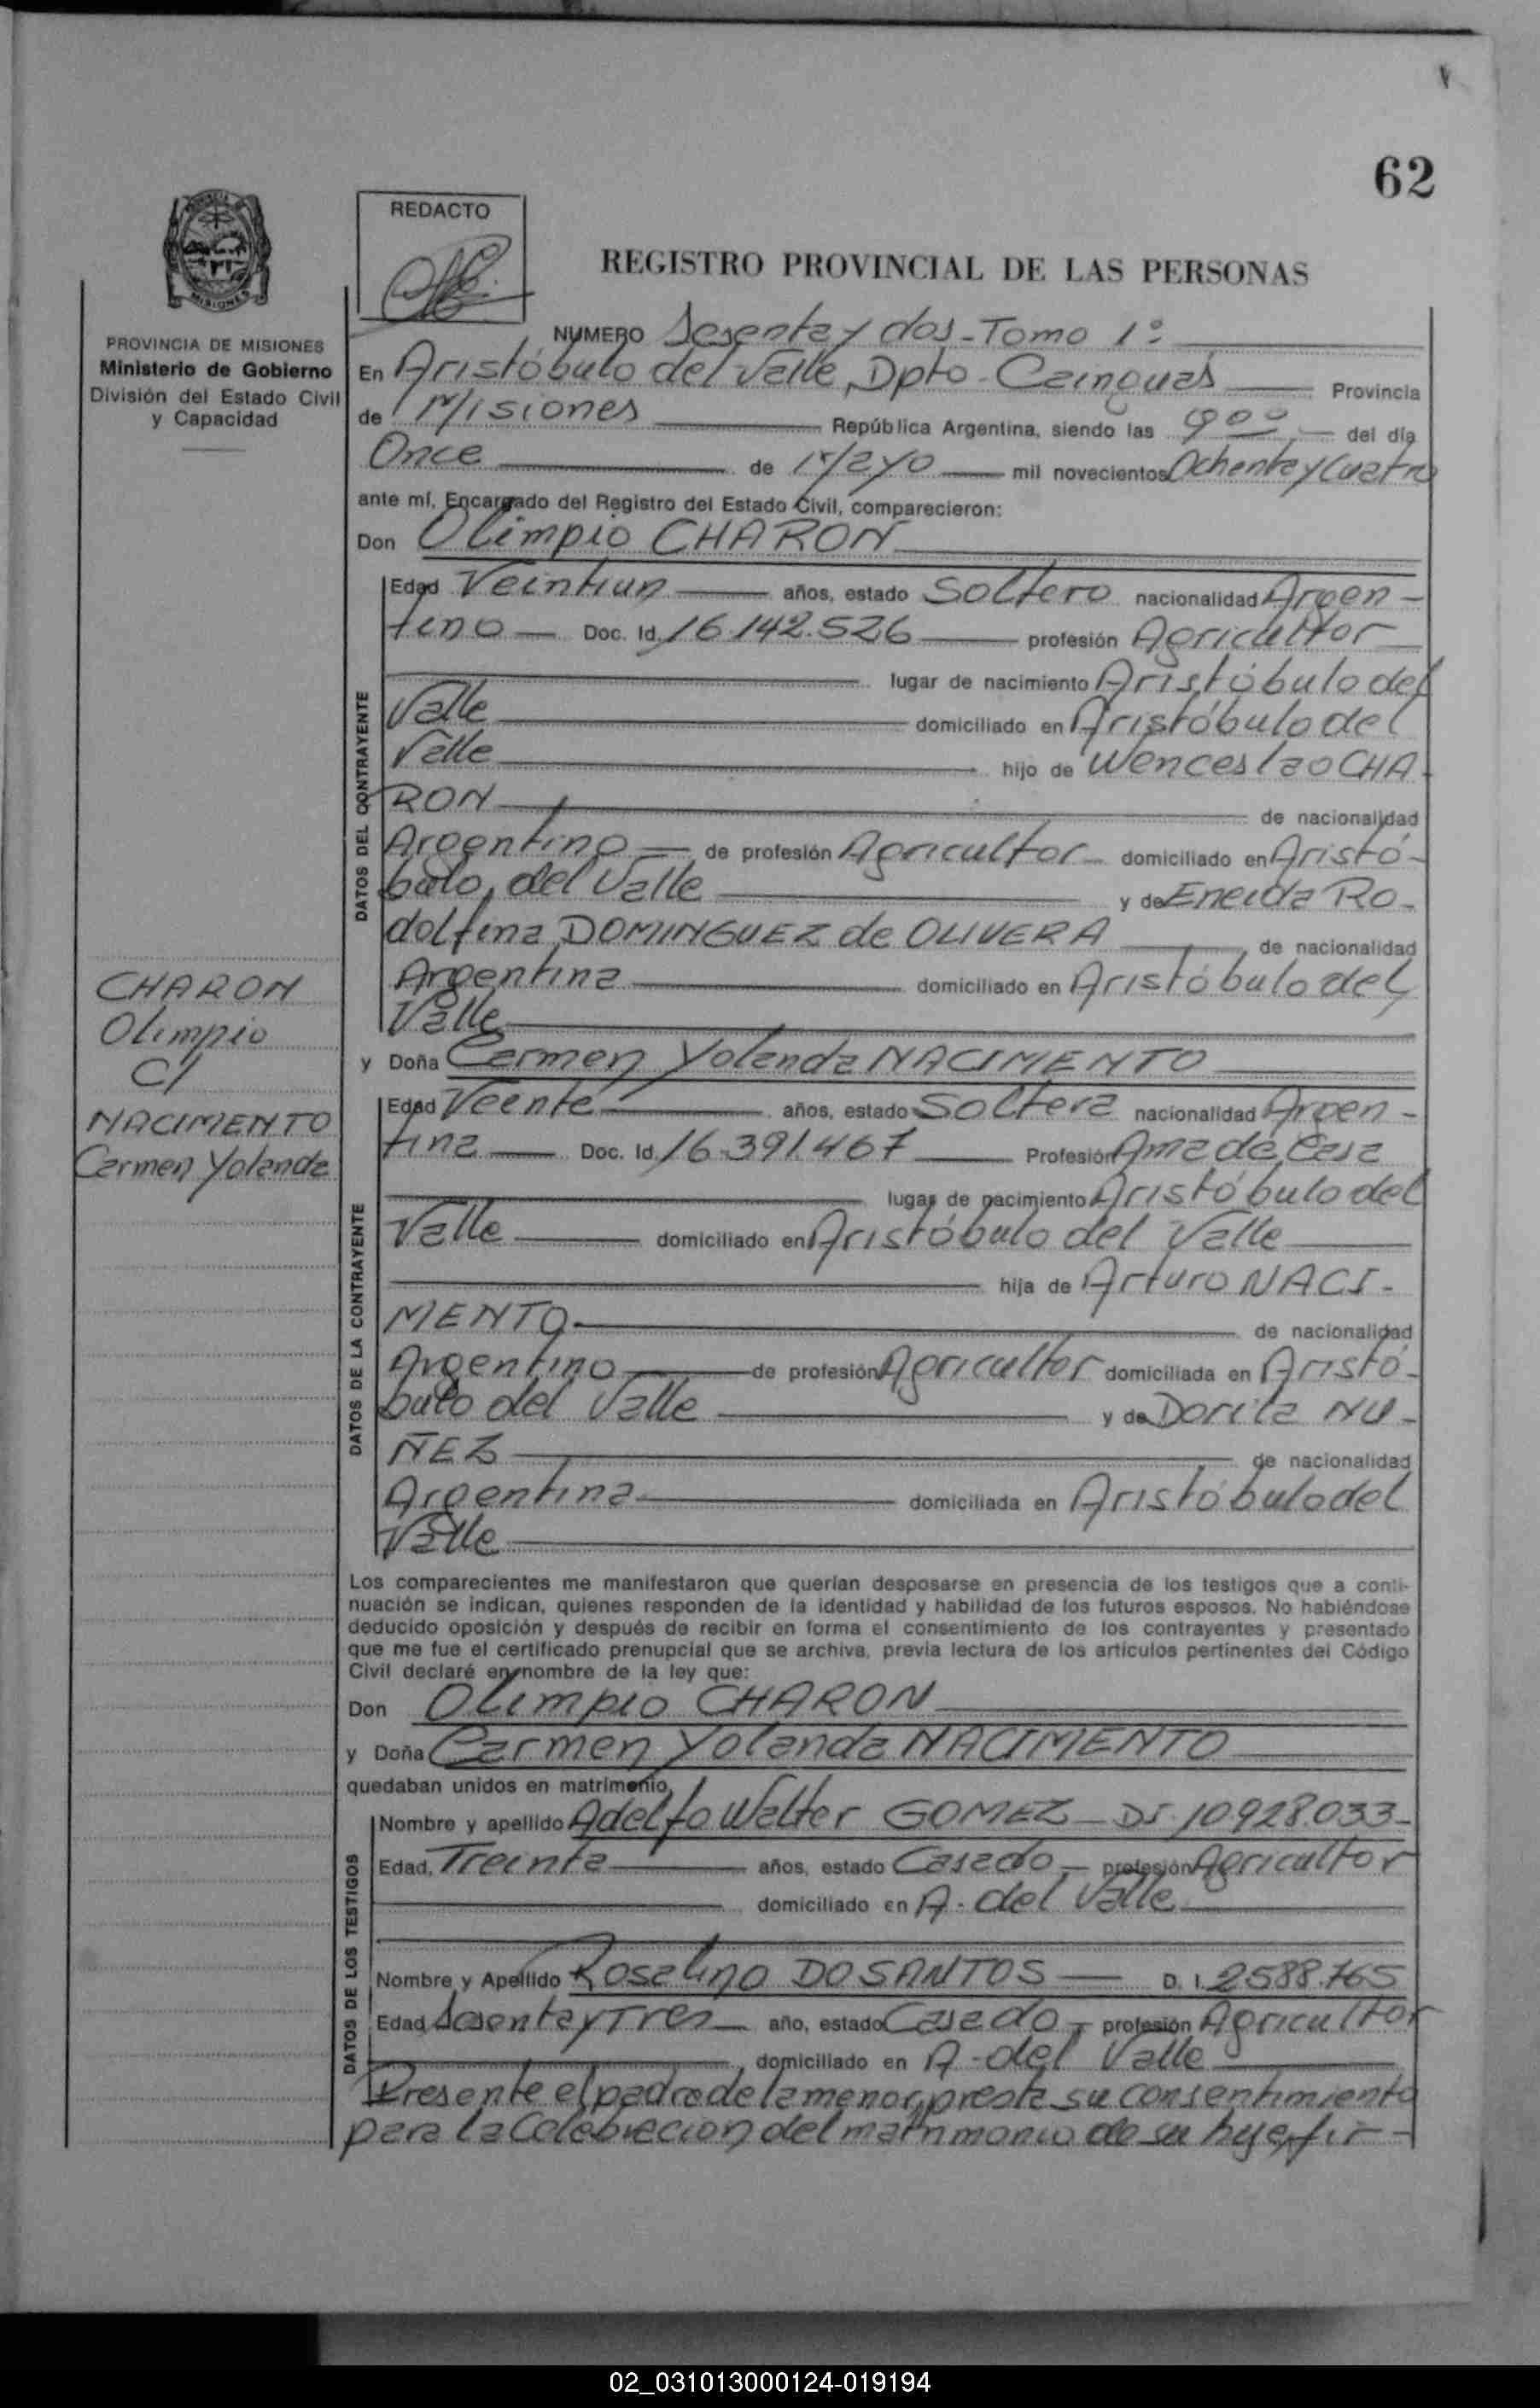 62
REDACTO
REGISTRO PROVINCIAL DE LAS PERSONAS
PROVINCIA DE MISIONES
Ministerio de Gobierno
División del Estado Civil
y Capacidad
NUMERO Sesenta y dos - Tomo 1º
En Aristóbulo del Valle, Dpto - Cainguas Provincia
de Misiones República Argentina, siendo las 9ºº del día
Once de Mayo mil novecientos Ochenta y Cuatro
ante mí, Encargado del Registro del Estado Civil, comparecieron:
Don Olimpio CHARON
DATOS DEL CONTRAYENTE
Edad Veintiun años, estado Soltero nacionalidad Argen-
tino Doc. Id. 16.142.526 profesión Agricultor
lugar de nacimiento Aristóbulo del
Valle domiciliado en Aristóbulo del
Valle hijo de Wenceslao CHA-
RON de nacionalidad
Argentino de profesión Agricultor domiciliado en Aristó-
bulo, del Valle y de Eneida Ro-
dolfina DOMINGUEZ de OLIVERA de nacionalidad
Argentina domiciliado en Aristóbulo del
Valle
CHARON
Olimpio
C/
NACIMENTO
Carmen Yolanda
y Doña Carmen Yolanda NACIMENTO
DATOS DE LA CONTRAYENTE
Edad Veinte años, estado Soltera nacionalidad Argen-
tina Doc. Id. 16.391.467 Profesión Ama de Casa
lugar de nacimiento Aristóbulo del
Valle domiciliado en Aristóbulo del Valle
hija de Arturo NACI-
MENTO de nacionalidad
Argentino de profesión Agricultor domiciliada en Aristó-
bulo del Valle y de Dorila NU-
ÑEZ de nacionalidad
Argentina domiciliada en Aristóbulo del
Valle
Los comparecientes me manifestaron que querían desposarse en presencia de los testigos que a conti-
nuación se indican, quienes responden de la identidad y habilidad de los futuros esposos. No habiéndose
deducido oposición y después de recibir en forma el consentimiento de los contrayentes y presentado
que me fue el certificado prenupcial que se archiva, previa lectura de los artículos pertinentes del Código
Civil declaré en nombre de la ley que:
Don Olimpio CHARON
y Doña Carmen Yolanda NACIMENTO
quedaban unidos en matrimonio,
DATOS DE LOS TESTIGOS
Nombre y apellido Adelfo Walter GOMEZ - DI. 10.928.033-
Edad, Treinta años, estado Casado profesión Agricultor
domiciliado en A. del Valle
Nombre y Apellido Roselino DOSANTOS D. I. 2588.765
Edad Sesenta y Tres año, estado Casado profesión Agricultor
domiciliado en A - del Valle
Presente el padre de la menor, presta su consentimiento
para la Celebracion del matrimonio de su hija, fir-
02_031013000124-019194